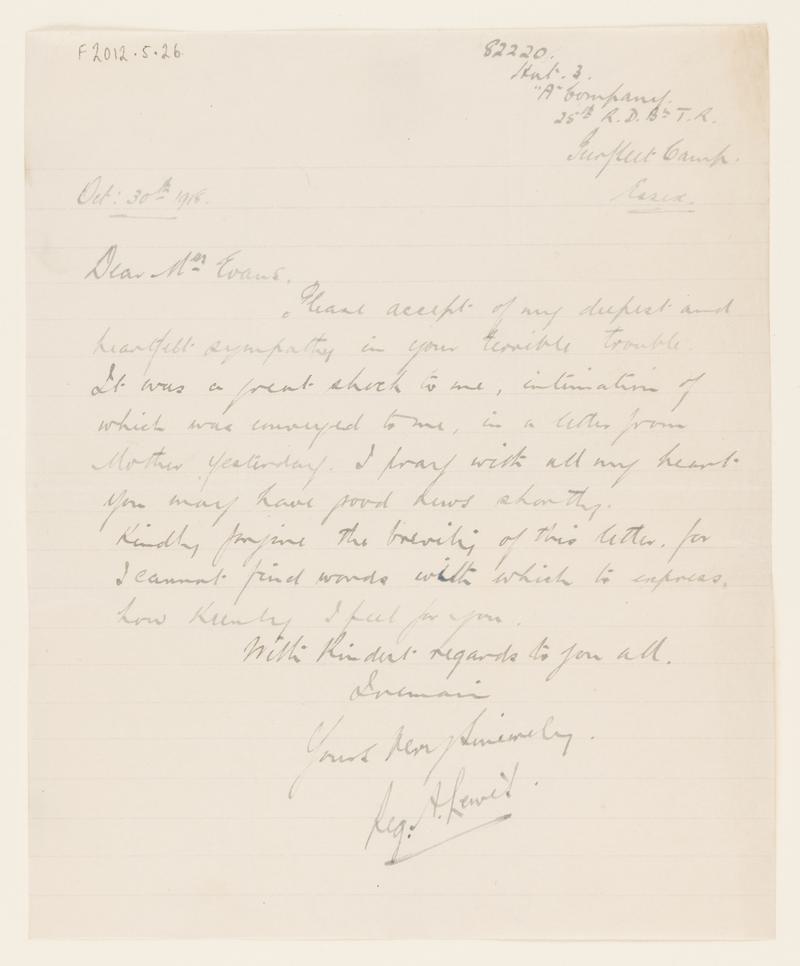 F2012.5.26
82220.
Hut. 3.
"A" Company.
25th R. D. Bn T. R.
Purfleet Camp.
Essex.
Oct: 30th 1918.
Dear Mrs Evans.
Please accept of my deepest and
heartfelt sympathy in your terrible trouble.
It was a great shock to me, intimation of
which was conveyed to me, in a letter from
Mother yesterday. I pray with all my heart
you may have good news shortly.
Kindly forgive the brevity of this letter. for
I cannot find words with which to express,
how keenly I feel for you.
With Kindest regards to you all.
I remain
Yours Very Sincerely.
Reg. A. Lewis.